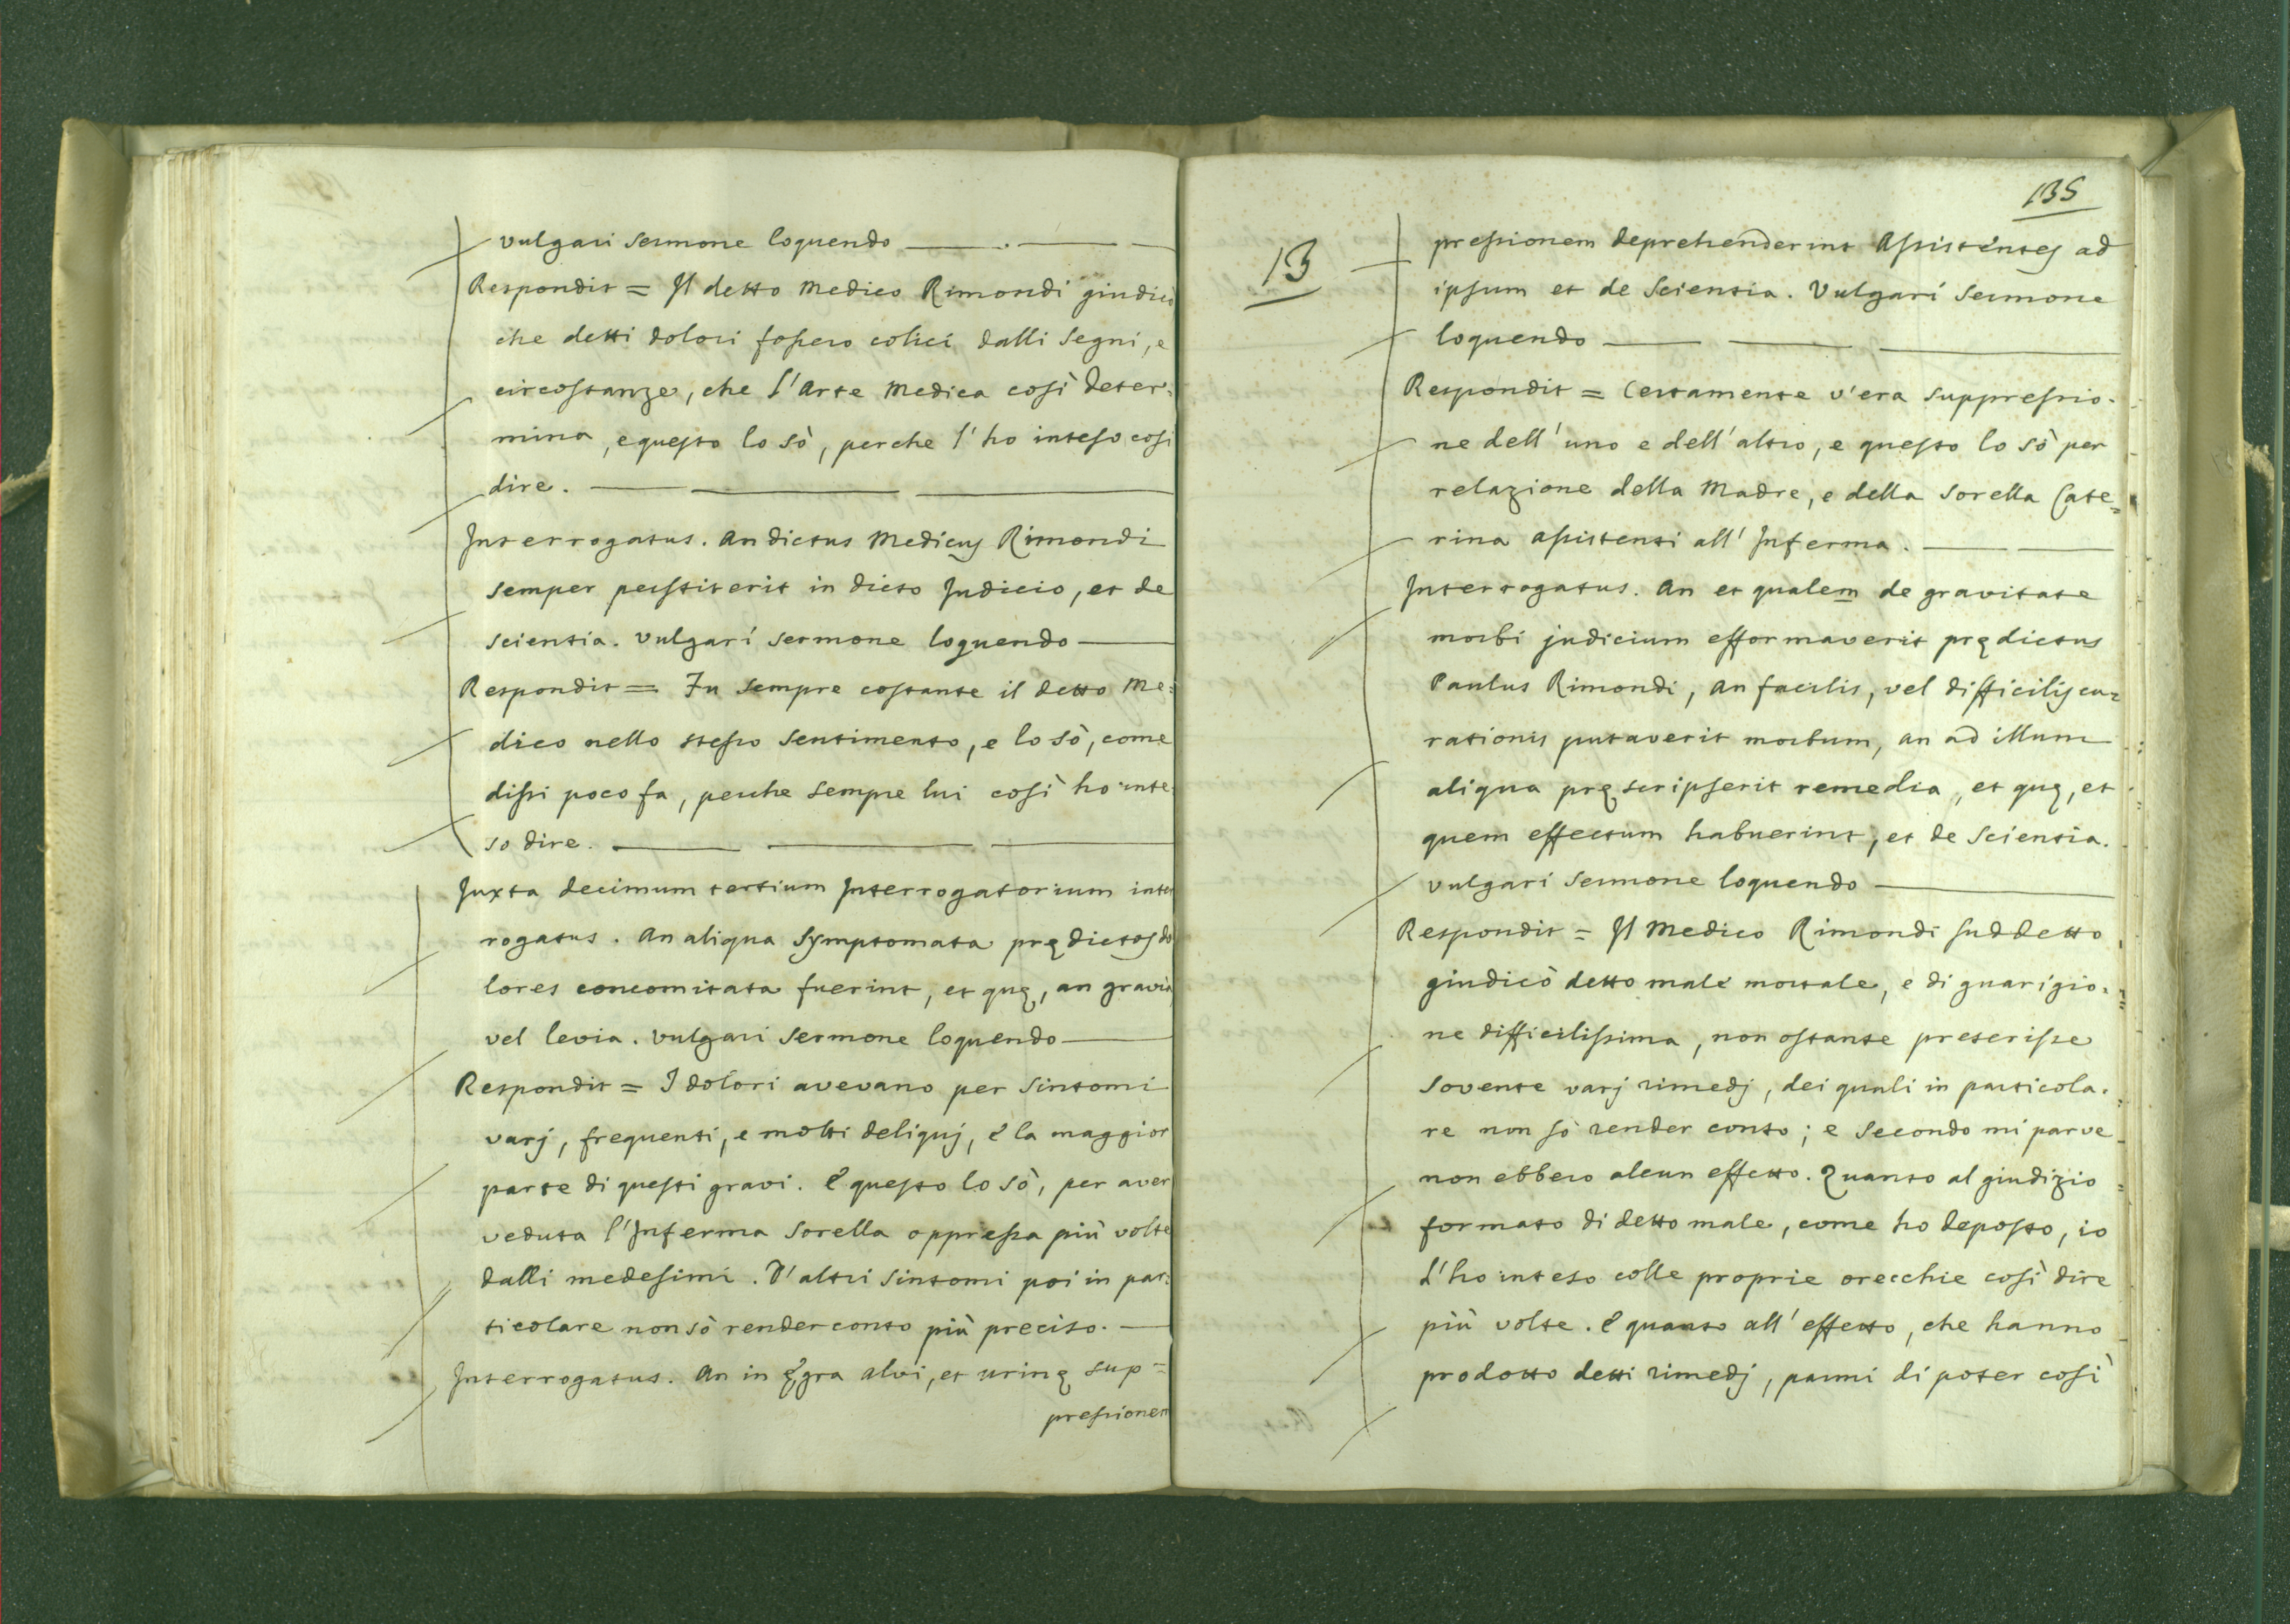 vulgari sermone loquendo
Respondit = Il detto Medico Rimondi giudicò
che detti dolori fossero colici dalli segni, e
circostanze, che l'Arte Medica così deter-
mina, e questo lo sò, perche l'ho inteso così
dire.
Interrogatus. An dictus Medicus Rimondi
semper perstiterit in dicto Judicio, et de
scientia. Vulgari sermone loquendo
Respondit = Fu sempre costante il detto Me=
dico nello stesso sentimento, e lo sò, come
dissi poco fa, perche sempre lui così ho inte
so dire.
Juxta decimum tertium Interrogatorium inter
rogatus. An aliqua symptomata prędictos do
lores concomitata fuerint, et quę, an gravia
vel levia. Vulgari sermone loquendo
Respondit = I dolori avevano per sintomi
varj, frequenti, e molti deliquj, e la maggior
parte di questi gravi. E questo lo sò, per aver
veduta l'Inferma Sorella oppressa più volte
dalli medesimi. D'altri sintomi poi in par=
ticolare non sò render conto più preciso.
Interrogatus. An in ęgra alvi, et urinę sup=
pressionem
135
13
pressionem deprehenderint Assistentes ad
ipsum et de Scientia. Vulgari Sermone
loquendo
Respondit = Certamente v'era suppressio-
ne dell'uno e dell'altro, e questo lo sò per
relazione della Madre, e della Sorella Cate=
rina assistenti all'Inferma.
Interrogatus. An et qualem de gravitate
morbi judicium efformaverit prędictus
Paulus Rimondi, an facilis, vel difficilis cu=
rationis putaverit morbum, an ad illum
aliqua pręscripserit remedia, et quę, et
quem effectum habuerint, et de Scientia.
Vulgari Sermone loquendo
Respondit = Il Medico Rimondi suddetto
giudicò detto male mortale, e di guarigio-
ne difficilissima, non ostante prescrisse
sovente varj rimedj, dei quali in particola-
re non sò render conto; e secondo mi parve
non ebbero alcun effetto. Quanto al giudizio
formato di detto male, come ho deposto, io
l'ho inteso colle proprie orecchie così dire
più volte. E quanto all'effetto, che hanno
prodotto detti rimedj, parmi di poter così